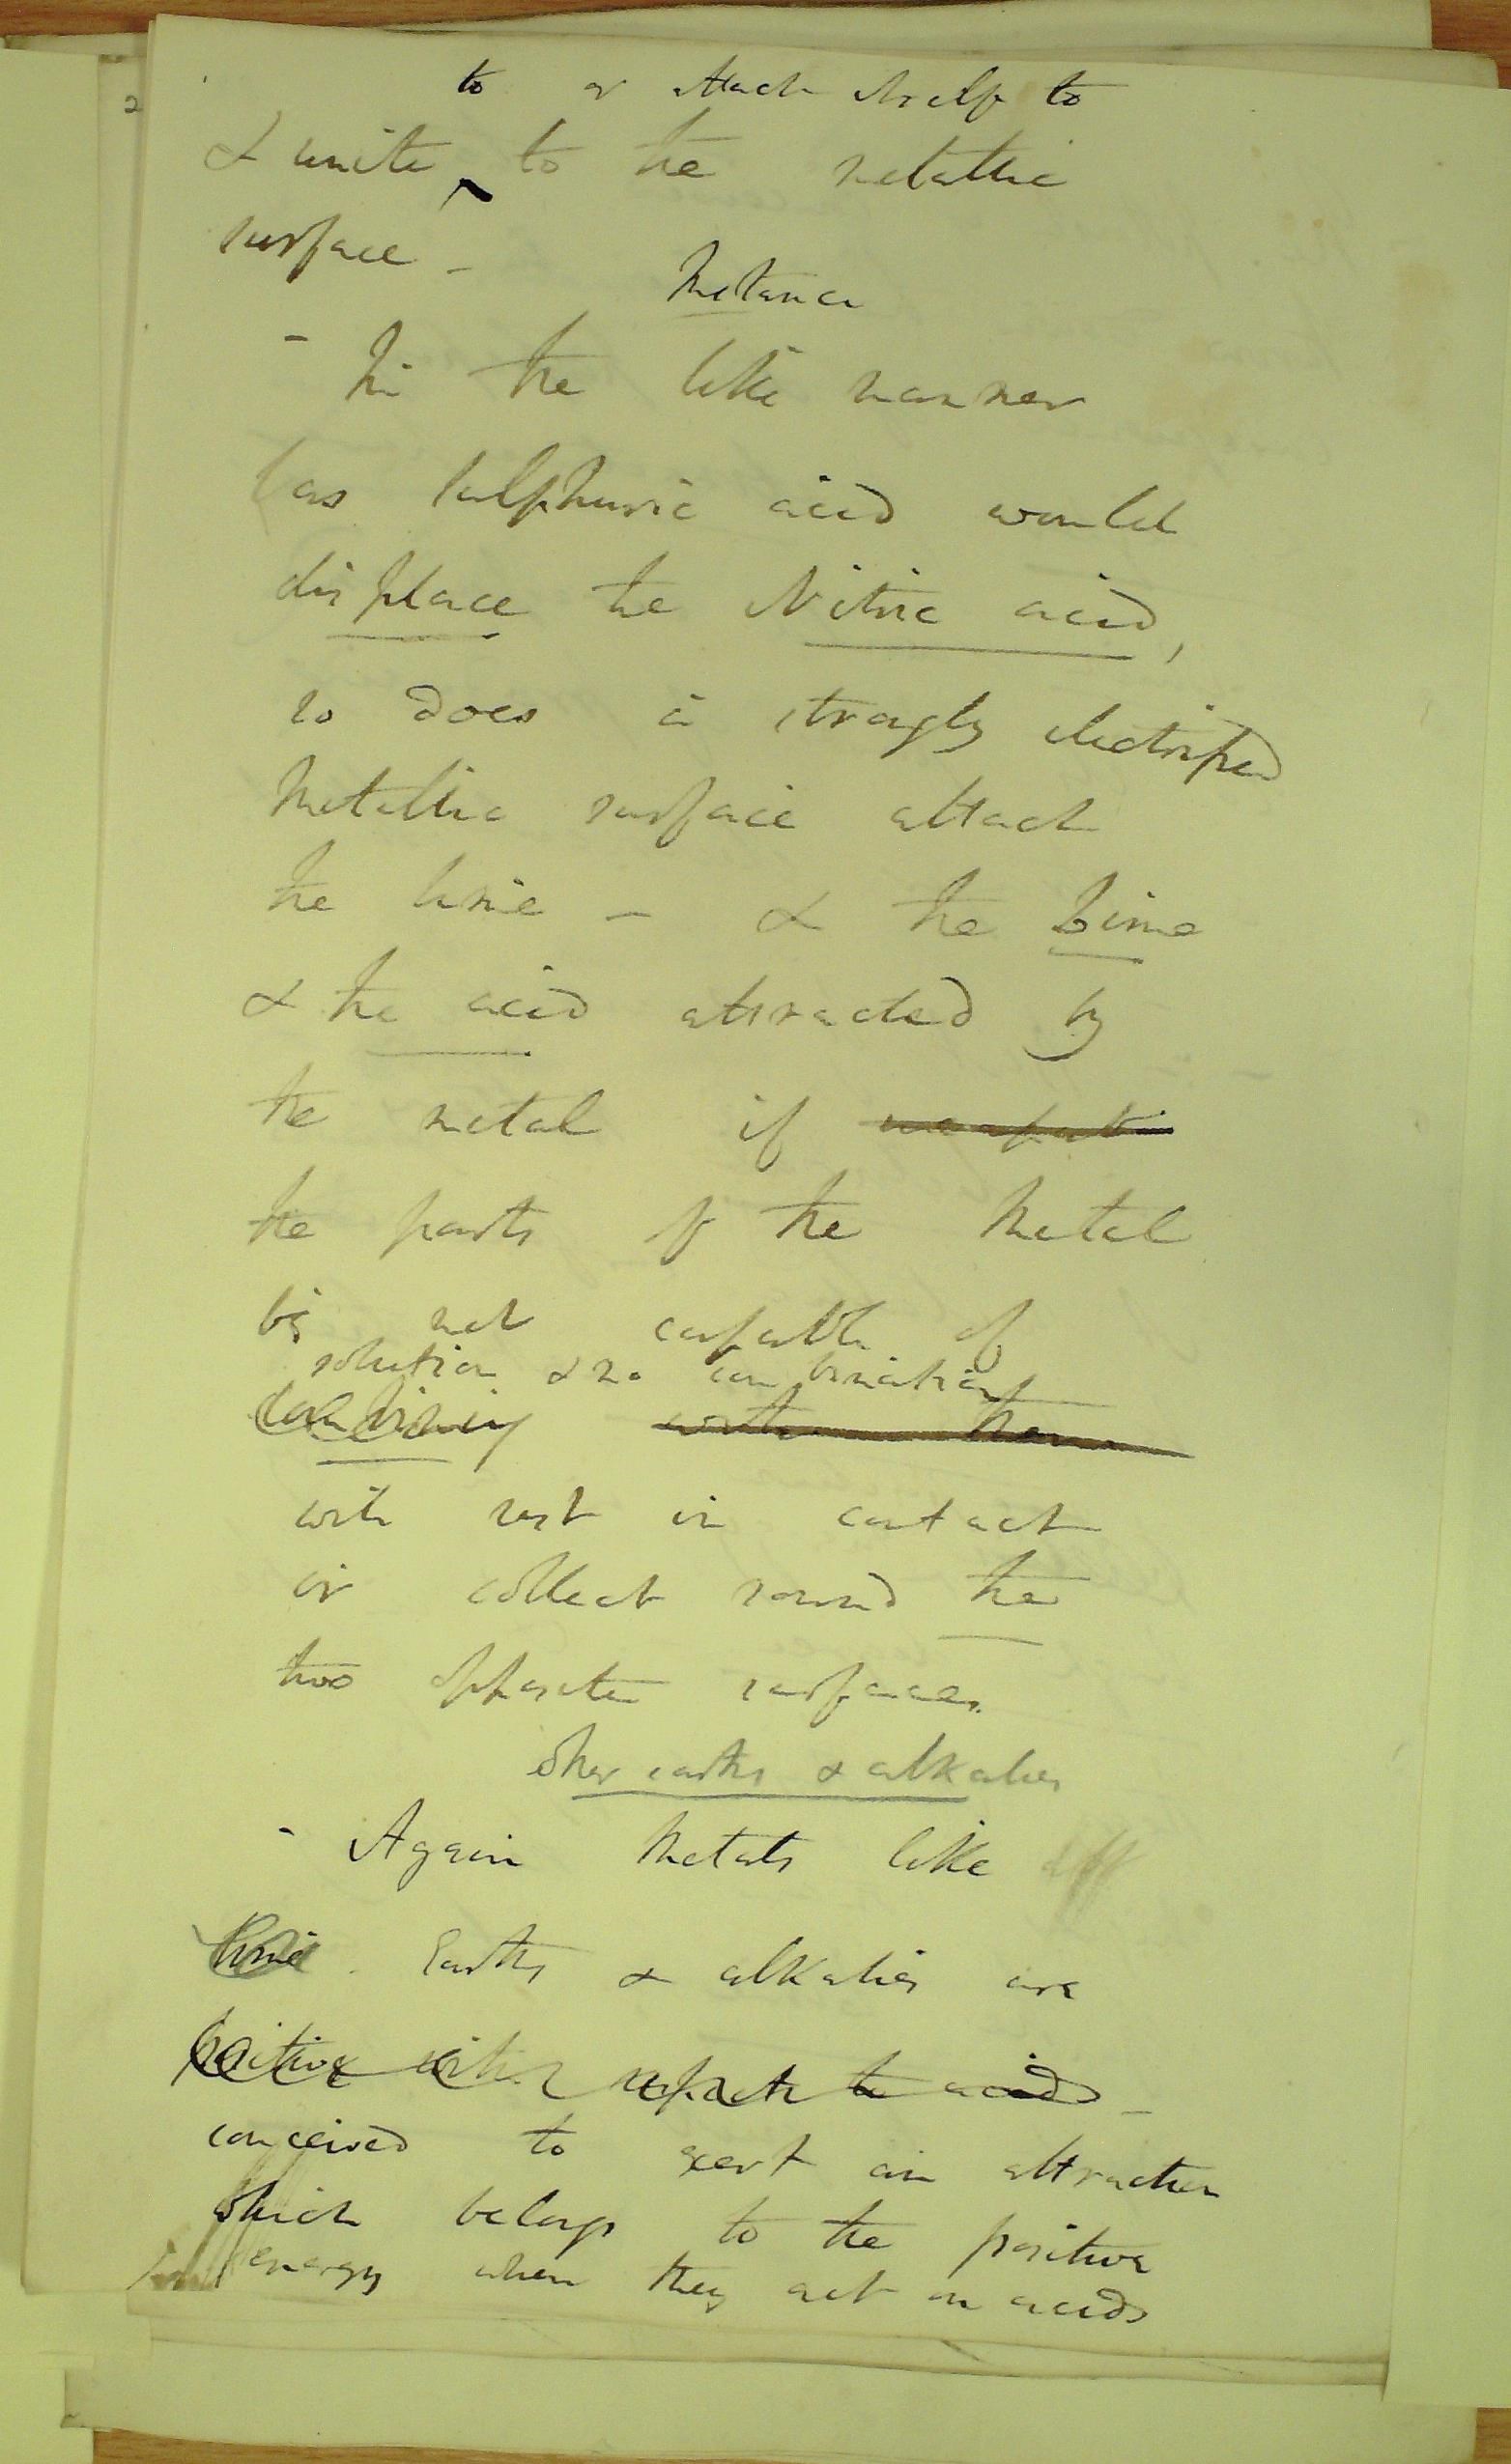 2
to or attach itself to
& unite to the metallic
surface -
Instance
- In the like manner
as sulphuric acid would
displace the Nitric acid,
so does a strongly electrified
Metallic surface attach
the lime - & the lime
& the acid attracted by
the metal if
the parts of the Metal
be not capable of
solution & no combination
combining with them
with rest in contact
or collect round the
two opposite surfaces.
other earths & alkalies
- Again Metals like
lime Earths & alkalies are
positive with respects to acids -
conceived to exert an attraction
which belongs to the positive
energy when they act on acids